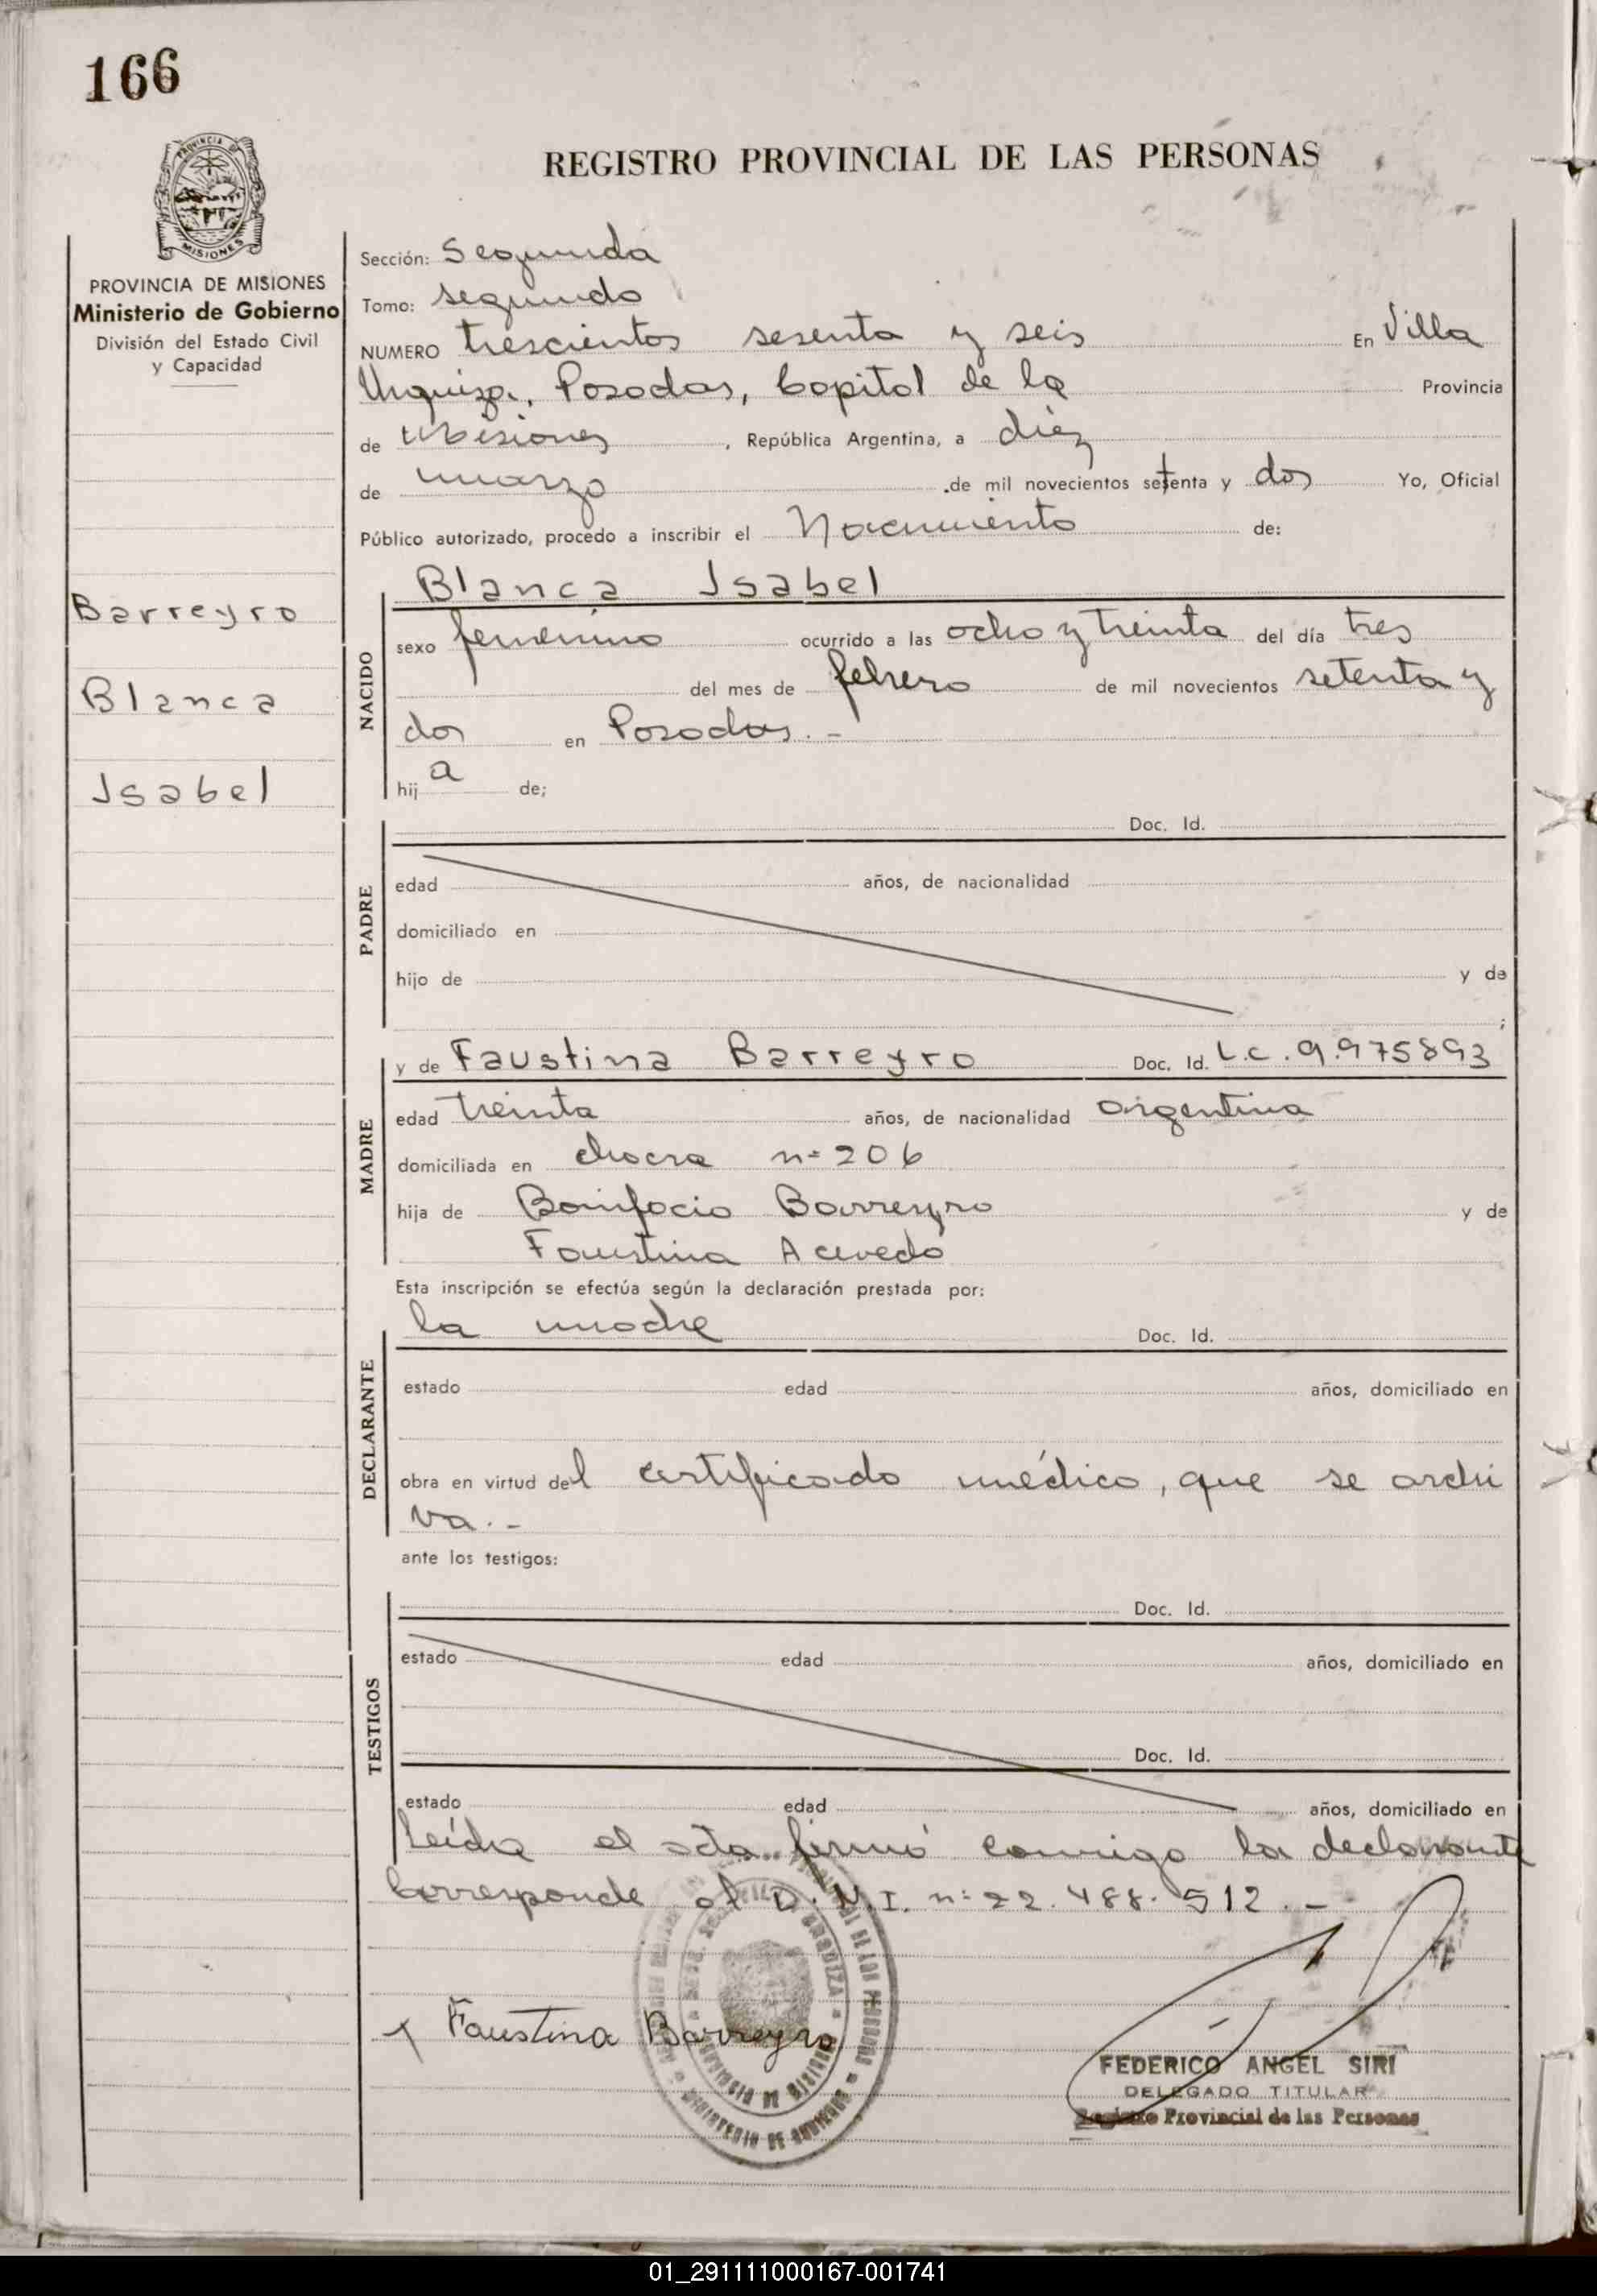 166
PROVINCIA DE
MISIONES
REGISTRO PROVINCIAL DE LAS PERSONAS
PROVINCIA DE MISIONES
Ministerio de Gobierno
División del Estado Civil
y Capacidad
Barreyro
Blanca
Isabel
Sección: Segunda
Tomo: segundo
NUMERO trescientos sesenta y seis En Villa
Urquiza, Posadas, Capital de la Provincia
de Misiones, República Argentina, a diez
de marzo de mil novecientos setenta y dos Yo, Oficial
Público autorizado, procedo a inscribir el Nacimiento de:
NACIDO
Blanca Isabel
sexo femenino ocurrido a las ocho y treinta del día tres
del mes de febrero de mil novecientos setenta y
dos en Posadas.-
hija de;
PADRE
Doc. Id.
edad años, de nacionalidad
domiciliado en
hijo de y de
;
MADRE
y de Faustina Barreyro Doc. Id. L.C. 9.975893
edad treinta años, de nacionalidad argentina
domiciliada en chacra nº 206
hija de Bonifacio Barreyro y de
Faustina Acevedo
Esta inscripción se efectúa según la declaración prestada por:
DECLARANTE
la madre Doc. Id.
estado edad años, domiciliado en
obra en virtud del certificado médico, que se archi
va.-
ante los testigos:
TESTIGOS
Doc. Id.
estado edad años, domiciliado en
Doc. Id.
estado edad años, domiciliado en
Leída el acta firmó conmigo la declarante
Corresponde al D.N.I. nº 22.488.512.-
Faustina Barreyro
FEDERICO ANGEL SIRI
DELEGADO TITULAR
Registro Provincial de las Personas
01_291111000167-001741